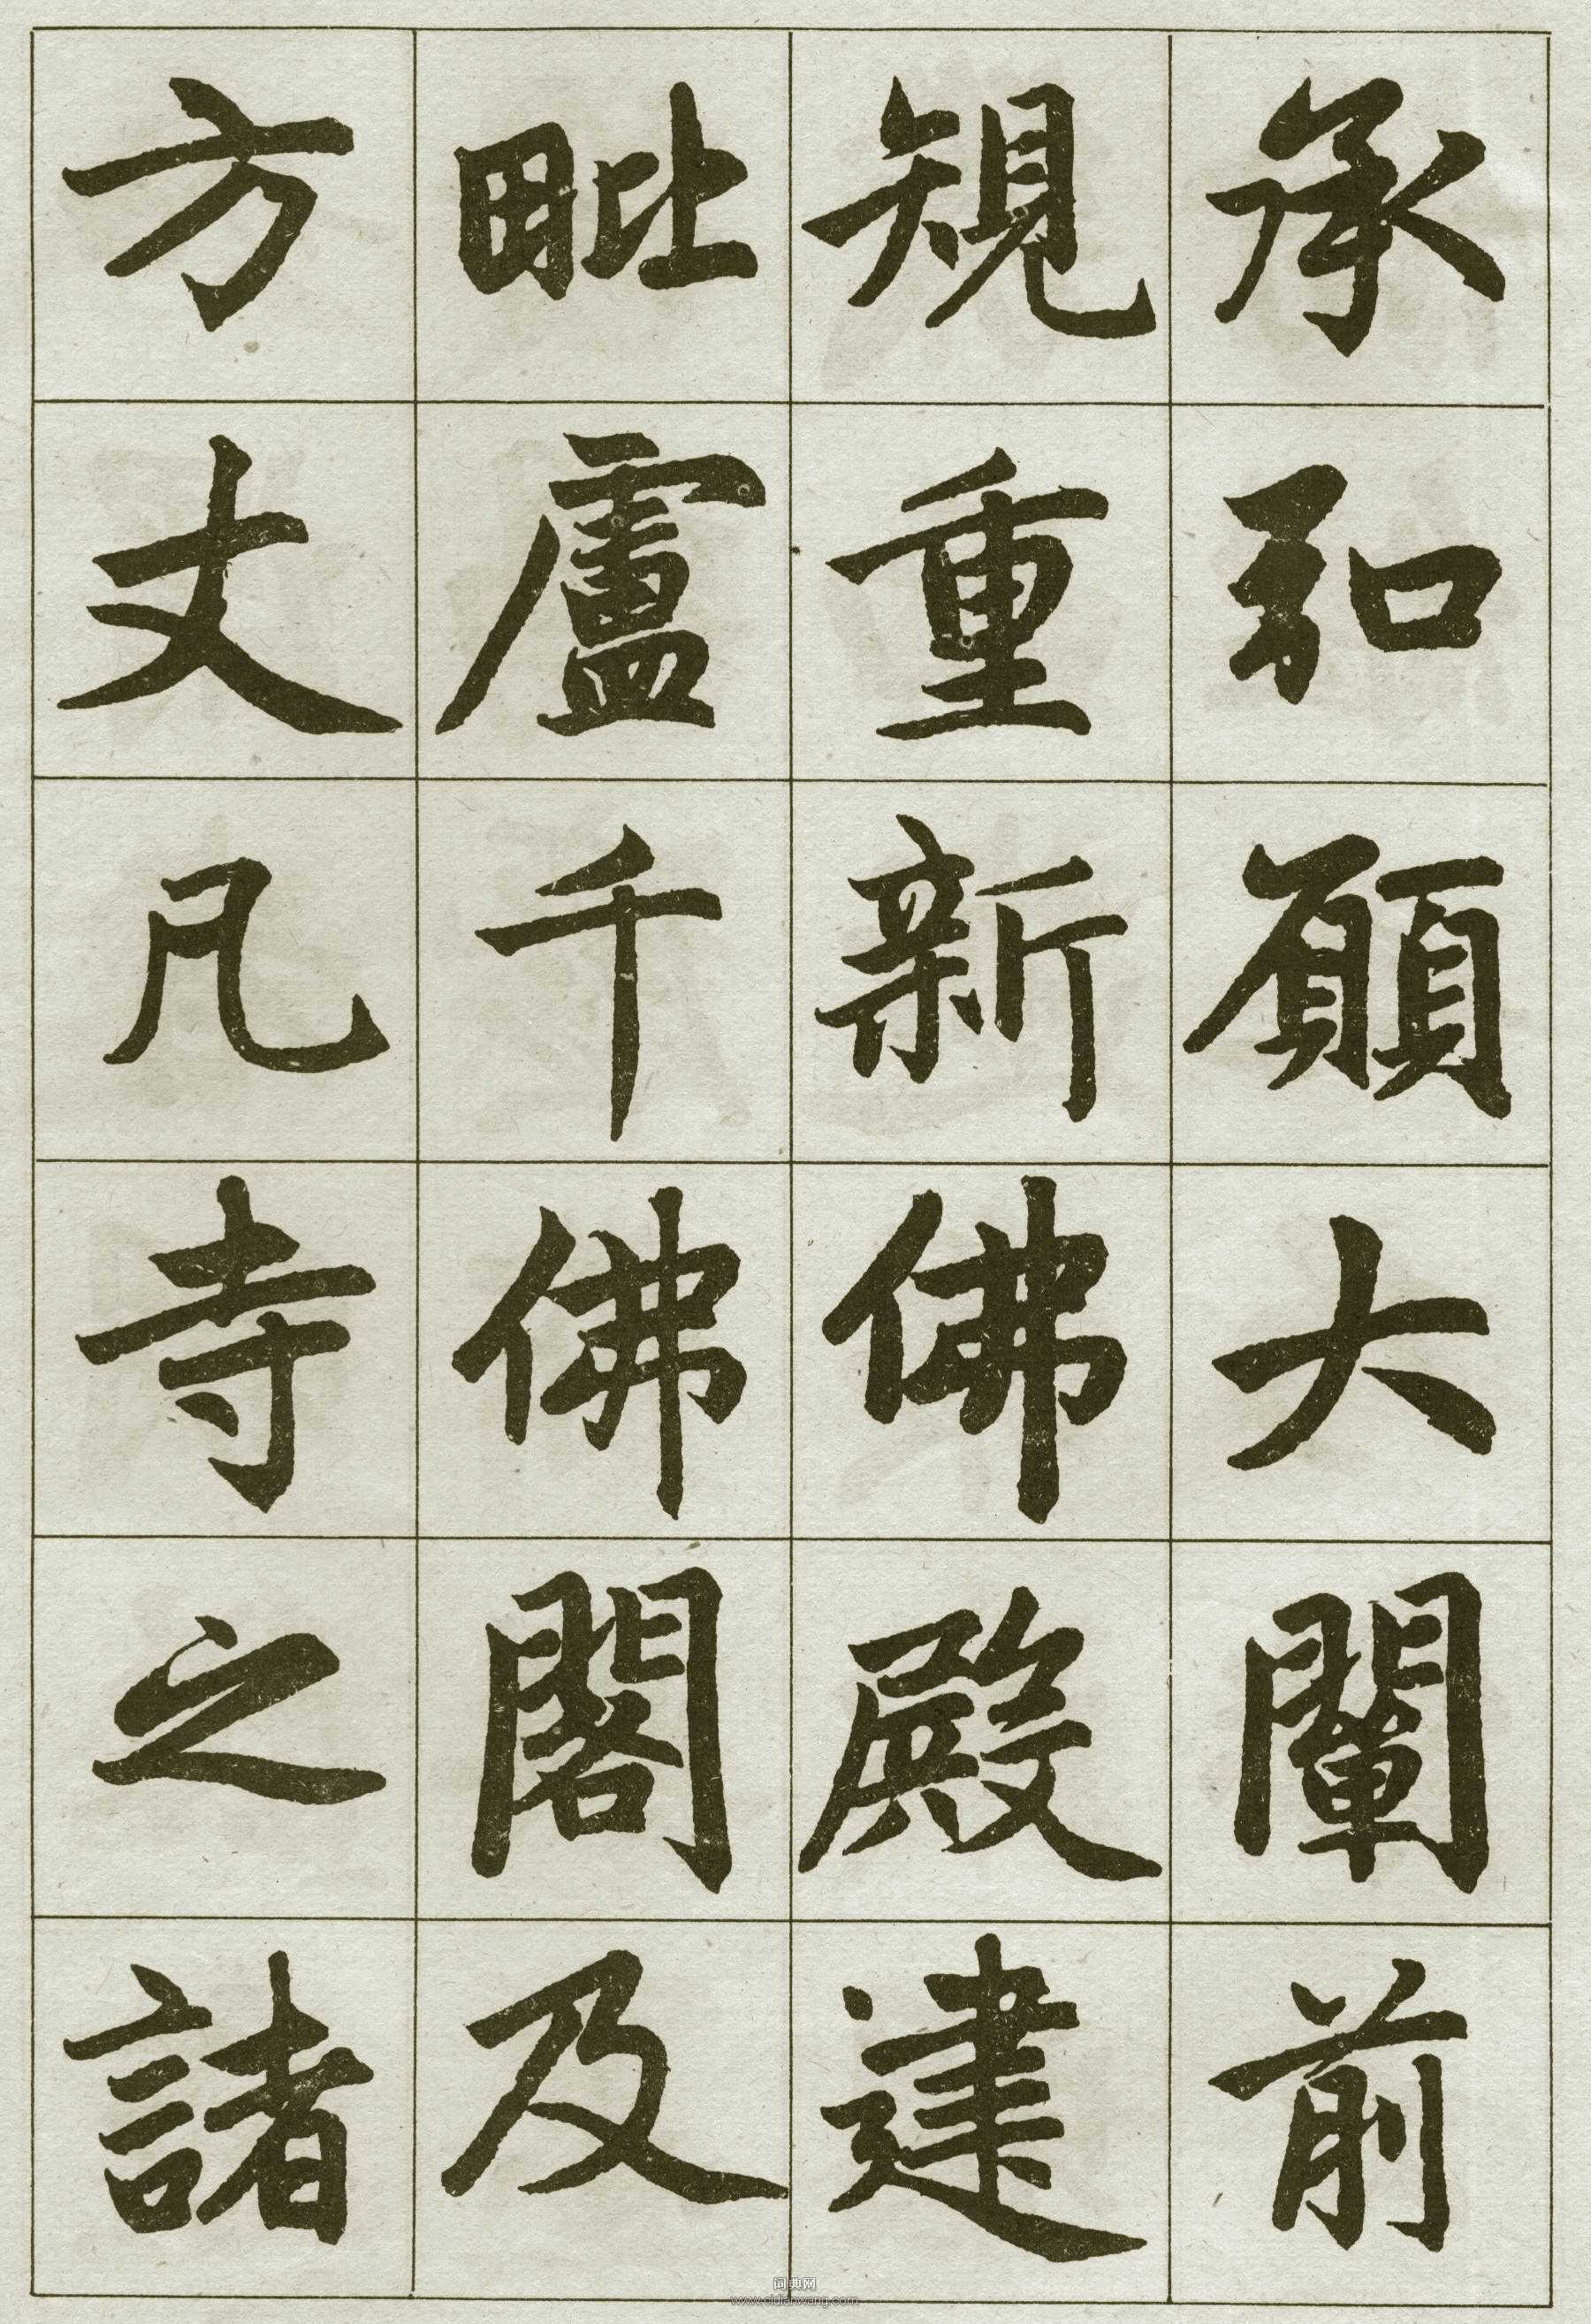 承弘願大闡前
規重新佛殿建
毗盧千佛閣及
方丈凡寺之諸
词典网
www.cidianwang.com